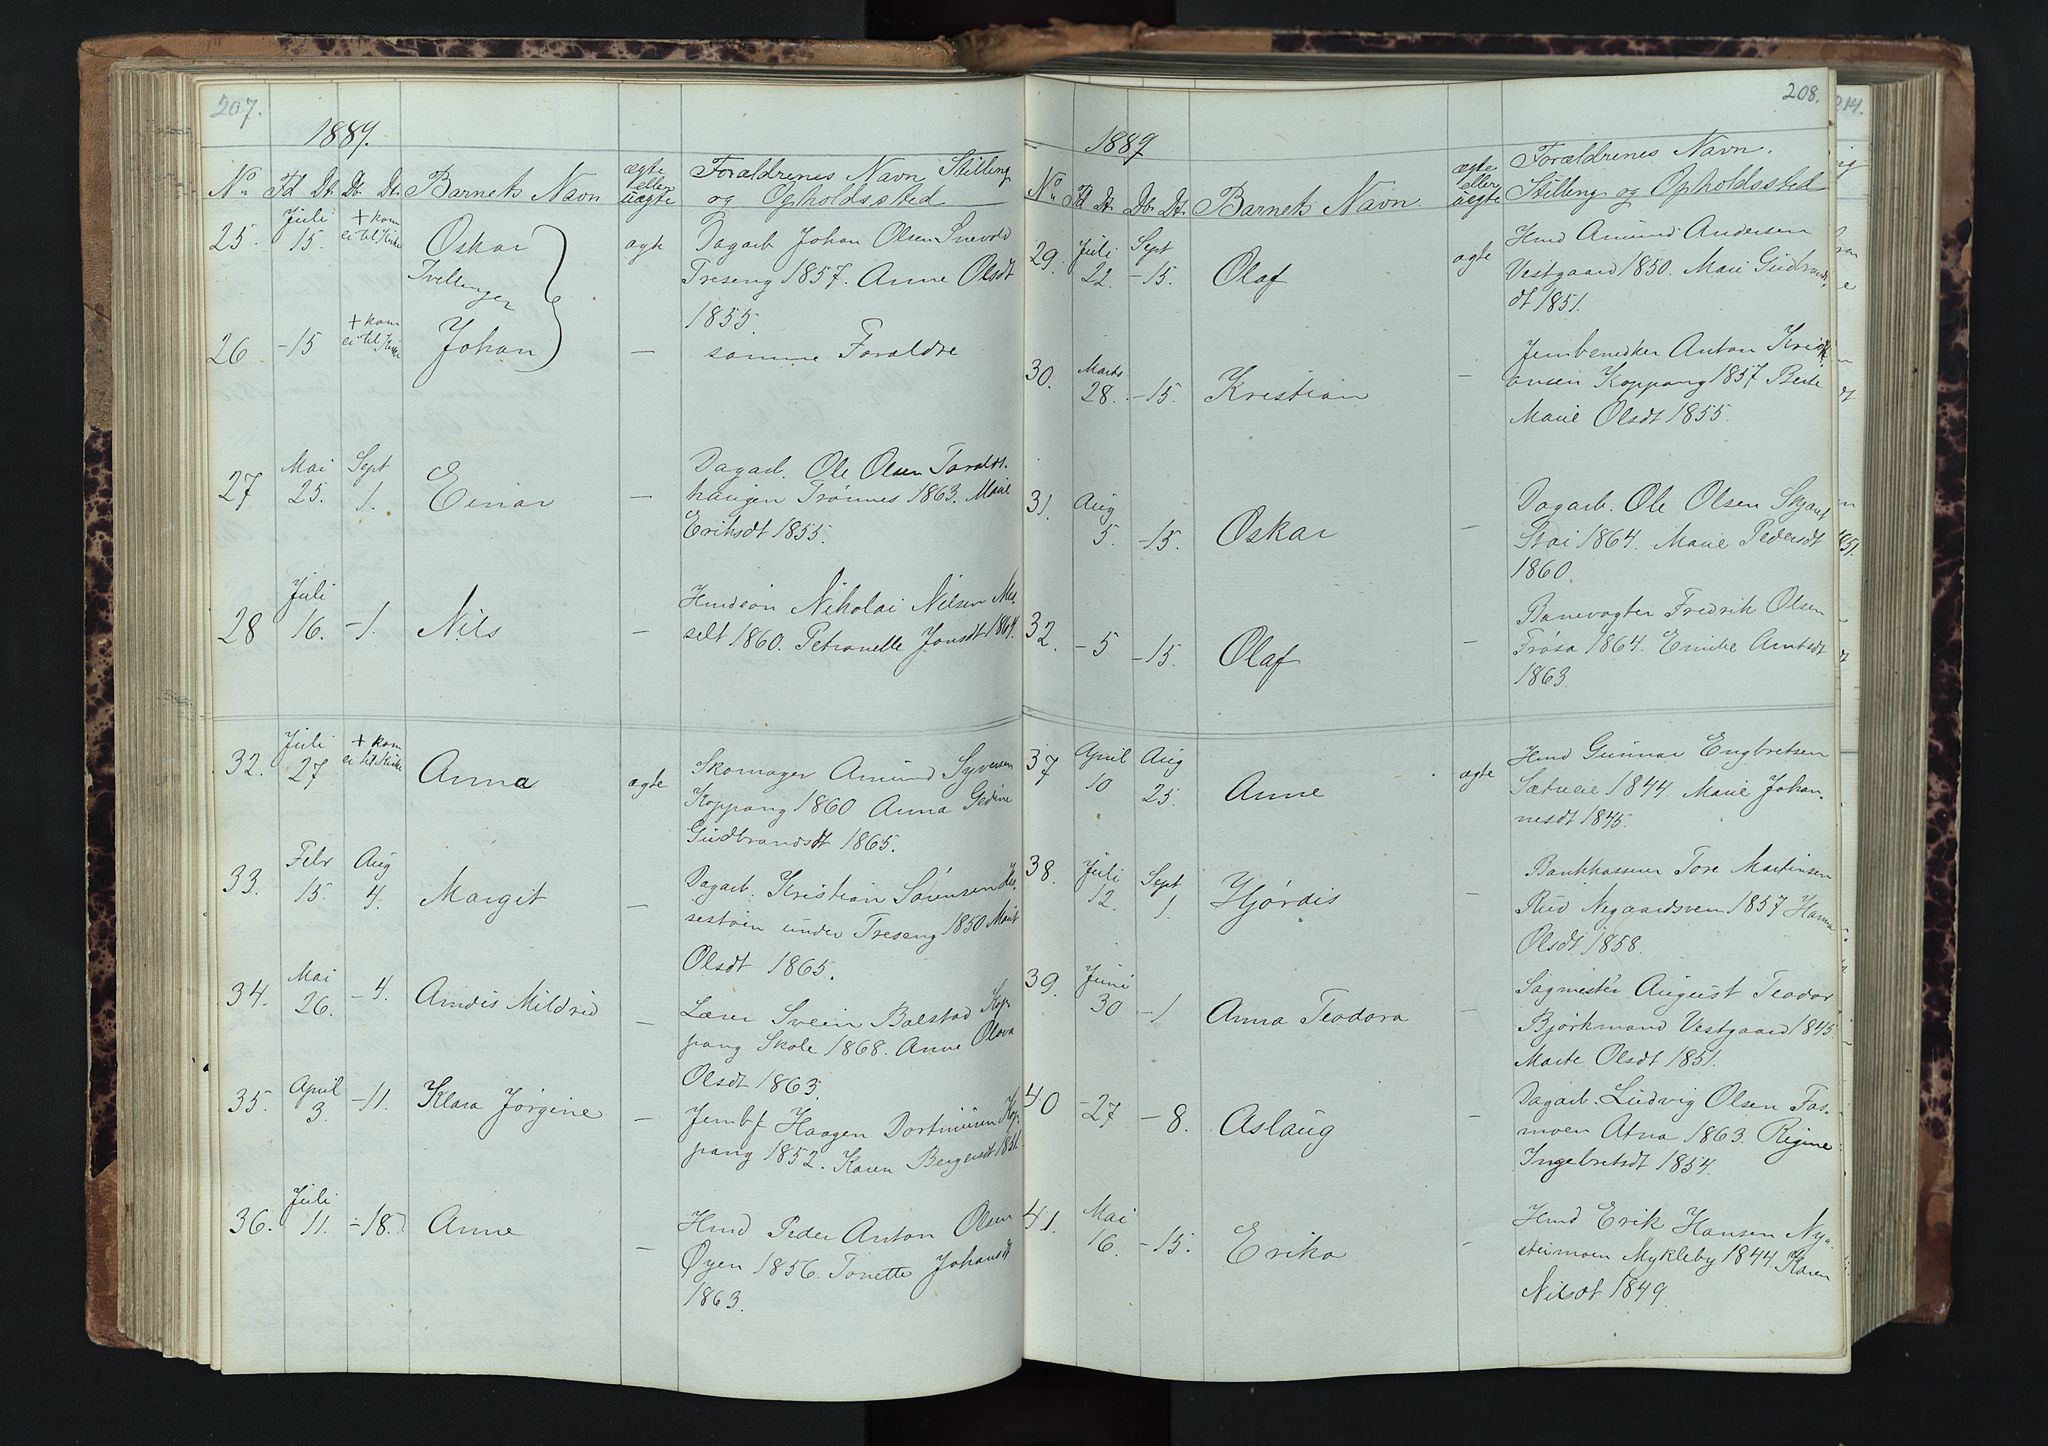 207.
1889.
No Fd Dt. Db. Dt. Barnets Navn ægte eller uægte Forældrenes Navn Stilling
og Opholdssted
25. Juli 15. + kom ei til Kirke Oskar ægte Dagarb Johan Olsen
Treseng 1857. Anne Olsdt
1855.
Tvillinger
26 -15 + kom ei til Kirke Johan — samme Forældre
27 Mai 25. Sept 1. Einar — Dagarb. Ole Olsen
haugen Trønnes 1863. Marie
Eriksdt 1855.
28 Juli 16. -1. Nils — Hmdsøn Nikolai Nilsen Mes-
selt 1860. Petronelle Jonsdt 1864.
32. Juli 27 + kom ei til Kirke Anna ægte Skomager Amund Syversen
Koppang 1860 Anna Gedine
Gudbrandsdt 1865.
33. Febr 15. Aug 4. Margit — Dagarb. Kristian Sørensen
under Treseng 1850 Marit
Olsdt 1865.
34. Mai 26. -4. Arndis Mildrid — Lærer Svein Balstad Kop-
pang Skole 1868. Anne Olava
Olsdt 1863.
35. April 3. -11. Klara Jørgine — Jernbf Haagen Dortmusen Kop-
pang 1852. Karen Bergersdt 1851.
36. Juli 11. -18. Anne — Hmd Peder Anton Olsen
Øyen 1856. Tonette Johansdt
1863.
208.
1889
No Fd Dt. Db. Dt. Barnets Navn ægte eller uægte Forældrenes Navn.
Stilling og Opholdssted
29. Juli 22. Sept -15. Olaf ægte Hmd Amund Andersen
Vestgaard 1850. Mari Gudbrands-
dt 1851.
30. Marts 28. -15. Kristian — Jernbsnedker Anton Kristi-
ansen Koppang 1857 Berte
Marie Olsdt 1855.
31. Aug 5. -15. Oskar — Dagarb. Ole Olsen
Stai 1864. Marie Pedersdt
1860
32. -5 -15. Olaf — Banevogter Fredrik Olsen
Frøsa 1864. Emilie Arntsdt
1863.
37 April 10 Aug 25. Anne ægte Hmd Gunnar Engbretsen
Sætreie 1844. Marie Johan-
nesdt 1845.
38. Juli 12. Sept 1. Hjørdis — Bankkasserer Tore Martinsen
Rud Negaardsven 1857 Hanna
Olsdt 1858.
39. Juni 30. -1 Anna Teodora — Sagmester August Teodor
Bjørkmand Vestgaard 1845
Marte Olsdt 1851.
40 -27 -8. Aslaug — Dagarb. Ludvig Olsen Fos-
moen Atna 1863. Regine
Ingebretsdt 1854.
41. Mai 16. -15. Erika — Hmd Erik Hansen Ny-
steimoen Mykleby 1844. Karen
Nilsdt 1849.
214.